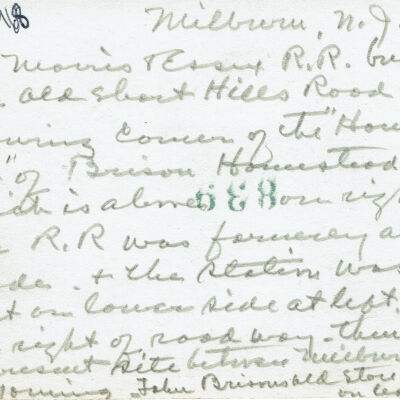 Milburn, N.J.
Morris & Essex R.R.
old Short Hills Road
corner of the "Hou
" of Brison Homestead
is above 688 on rig
R.R was formerly a
& the station was
on lower side at left.
right of road way - then
present site between Milburn
John Brison's old Store
on le